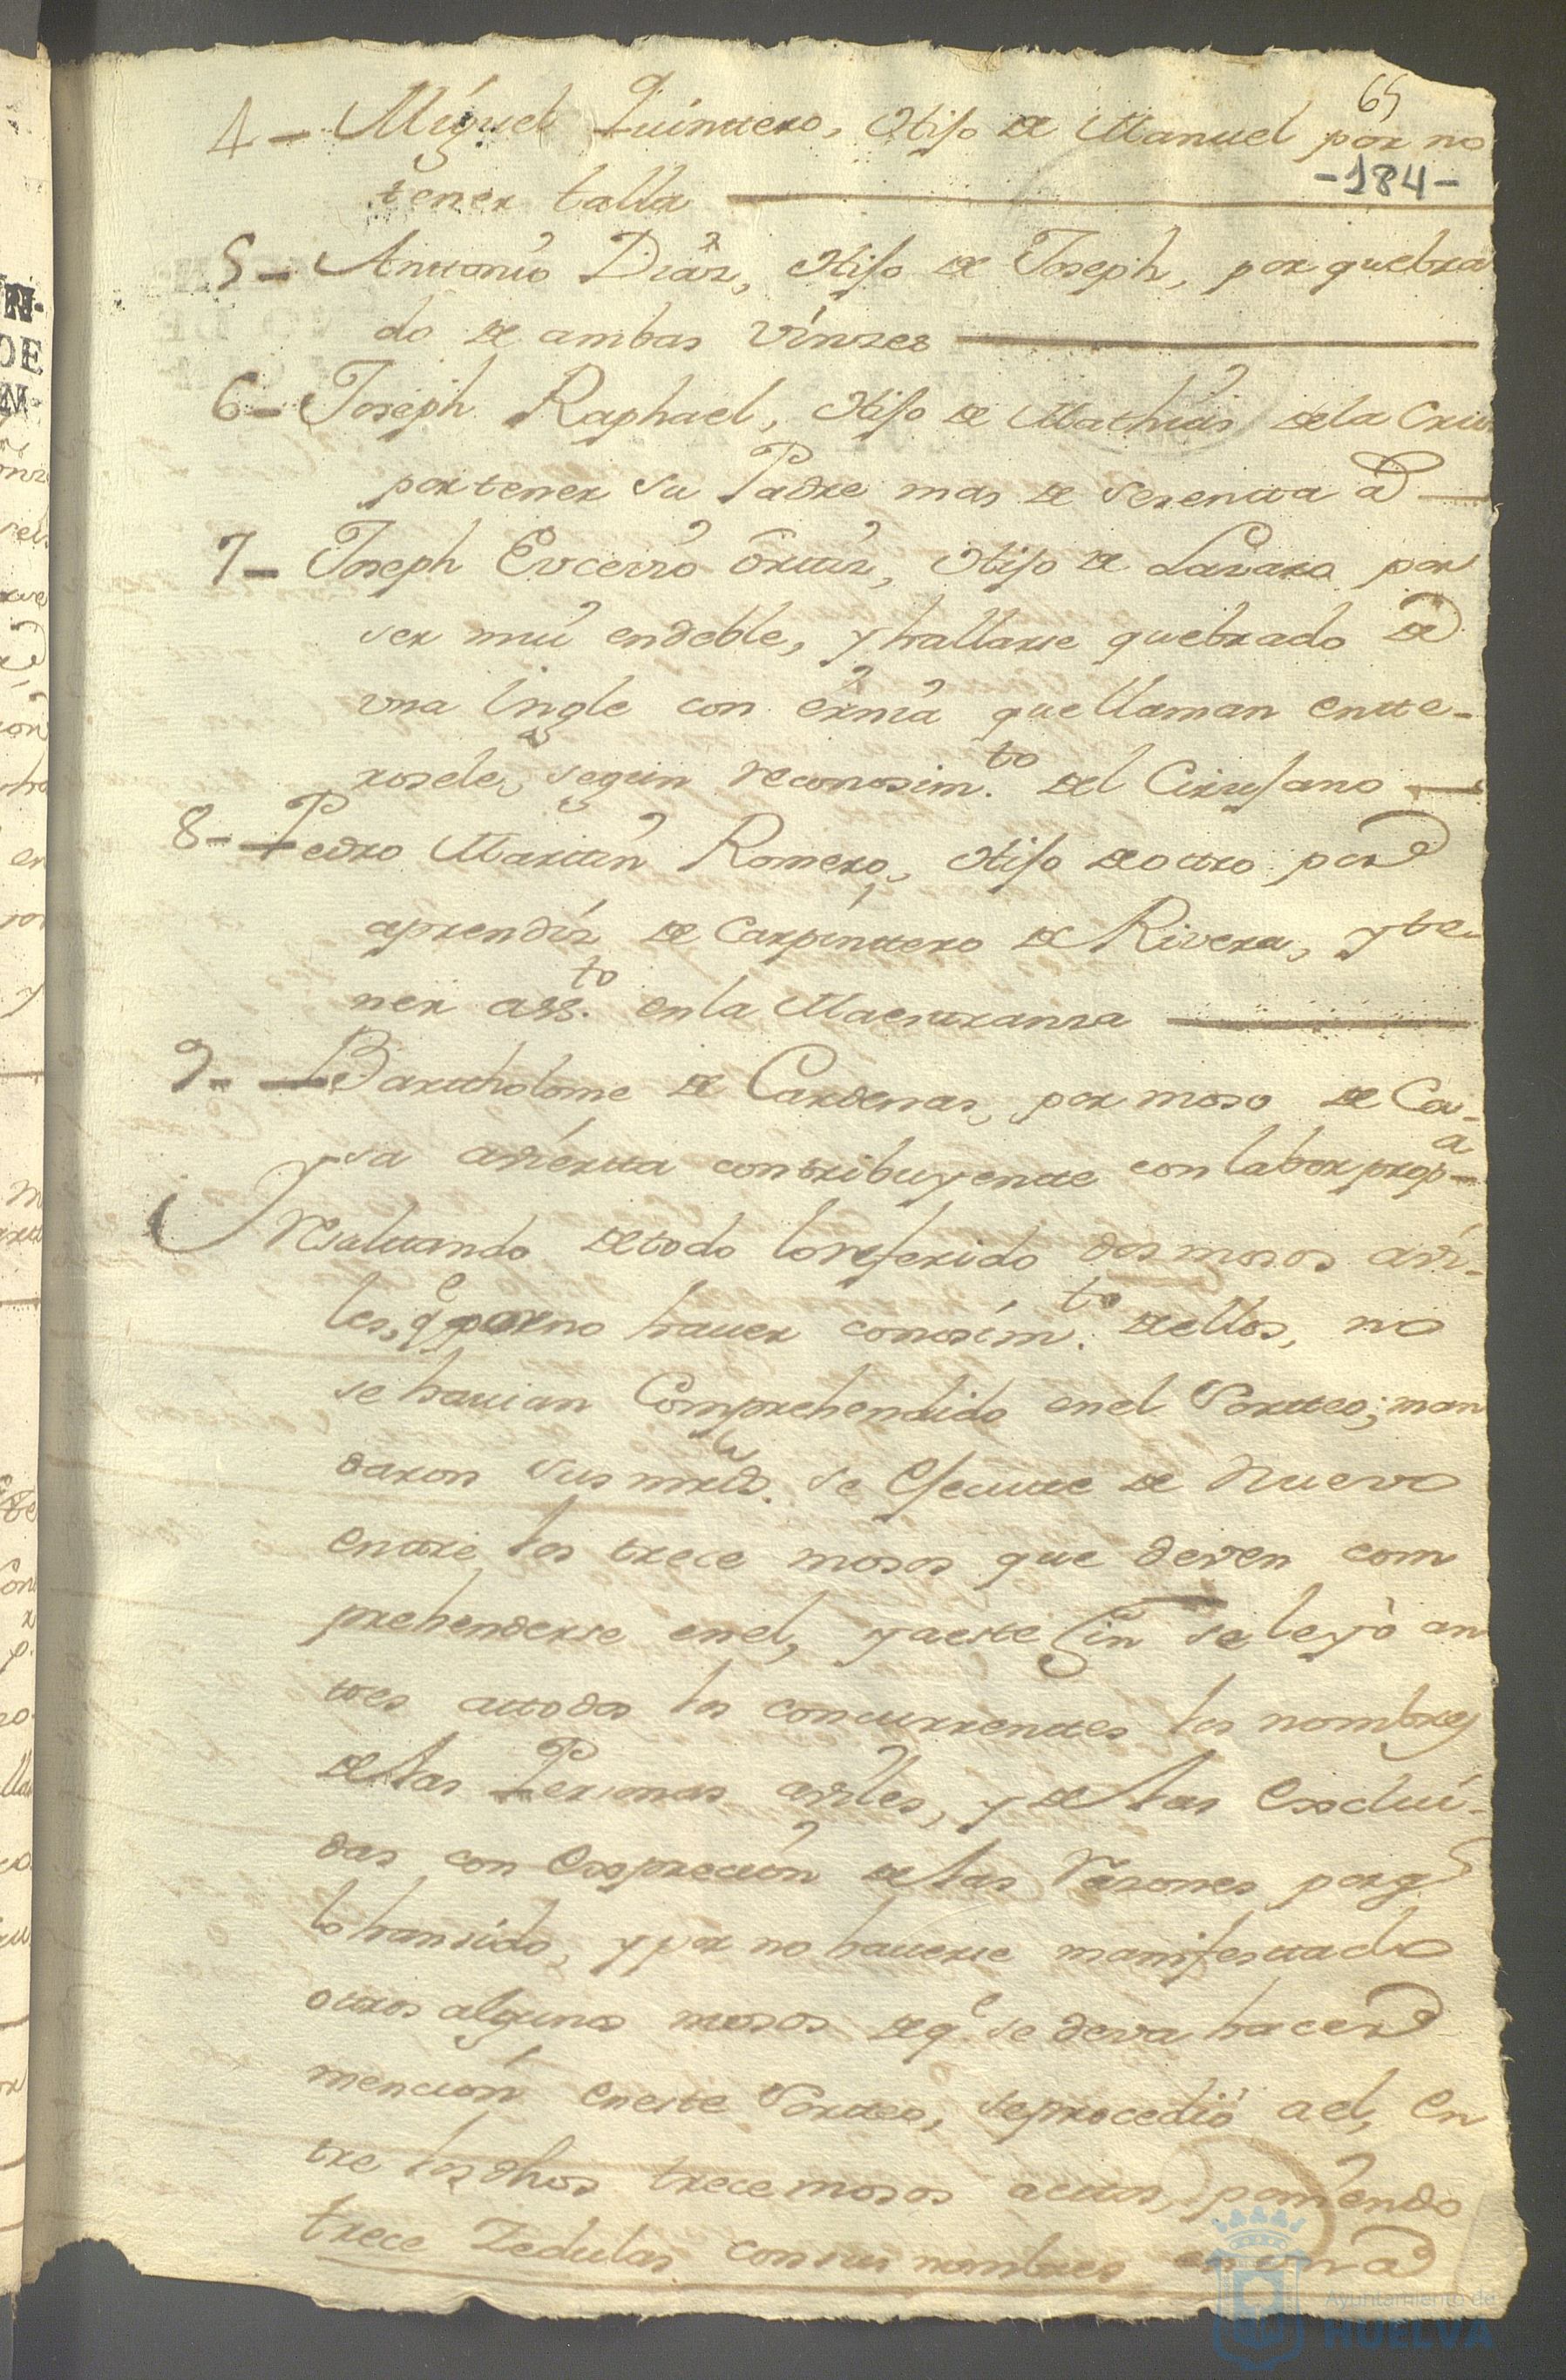 65
4 — Miguel Quinttero, Hijo de Manuel por no
-184-
tener talla
5 — Anttonio Diaz, Hijo de Joseph, por quebra
do de ambas Yngles
6 — Joseph Raphael, Hijo de Mathias de la Cruz
por tener su Padre mas de sesentta a.
7 — Joseph Eucevio Orttiz, Hijo de Lazaro por
ser mui endeble, y hallarse quebrado de
una Yngle con ernia que llaman entte-
rosele, segun reconosim.to del Cirujano
8 — Pedro Marttin Romero, Hijo de ottro por
aprendiz de Carpinttero de Rivera, y te-
ner ass.to en la Maestranza
9 — Barttholome de Cardenas, por moso de Ca-
sa avierta conttribuyentte con labor prop.a
Y Resulttando de todo lo referido dos mosos avi-
les, q.e por no hauer conosim.to de ellos, no
se hauian Comprehendido en el Sortteo; man
daron sus mrds. se Ejecutte de Nuevo
entre los trece mosos que deven com
prehenderse en el, y a este fin se leyò an
tes a ttodos los concurrenttes los nombres
de las Personas aviles, y de las Exclui-
das con Expreción de las Razones porq.e
lo han sido, y por no hauerse manifesttado
ottros algunos mosos de q.e se deva hacer
mención en este Sortteo, se procedió a el, en
tre los dhos trece mosos acttos, poniendo
trece Zedulas con sus nombres en una
N-
DE
M-
Ayuntamiento de
HUELVA